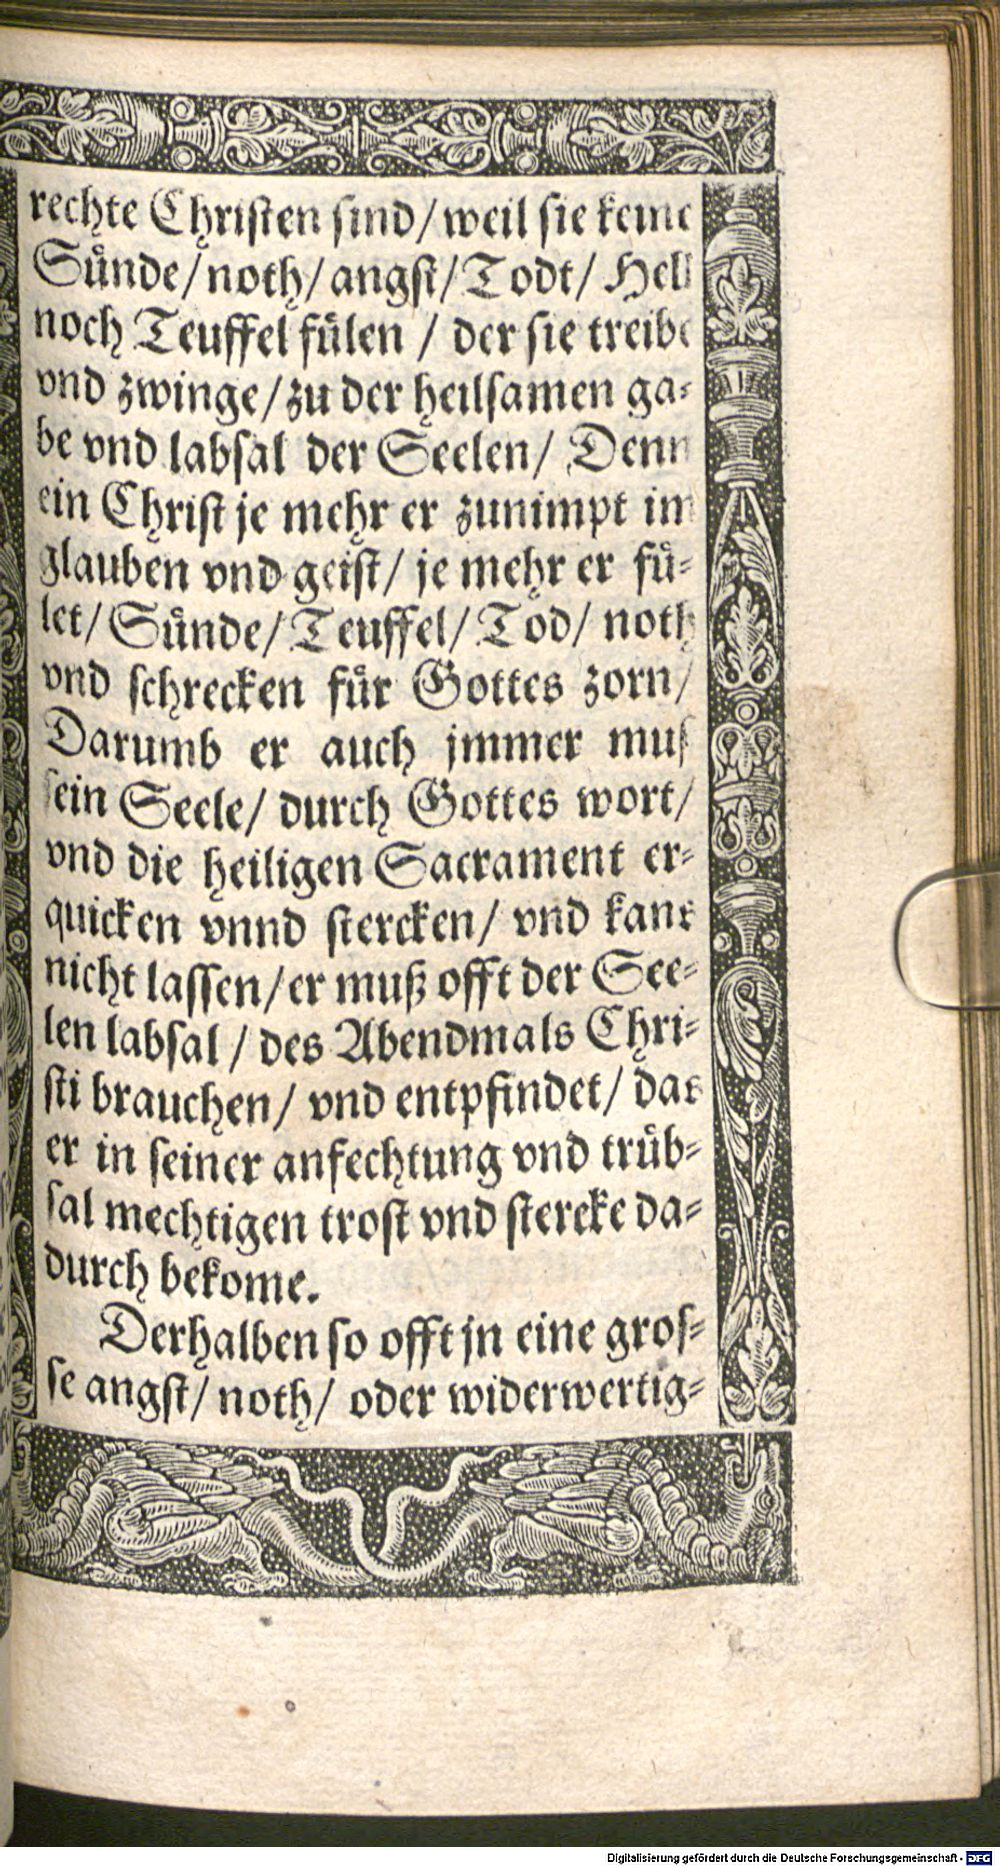 rechte Christen sind/ weil sie keine
Sůnde/ noth/ angst/ Todt/ Hell
noch Teuffel fůlen / der sie treibe
vnd zwinge/ zu der heilsamen ga⸗
be vnd labsal der Seelen/ Denn
ein Christ je mehr er zunimpt im
glauben vnd geist/ je mehr er fů⸗
let/ Sůnde/ Teuffel/ Tod/ noth
vnd schrecken fůr Gottes zorn/
Darumb er auch jmmer mus
sein Seele/ durch Gottes wort/
vnd die heiligen Sacrament er⸗
quicken vnnd stercken/ vnd kans
nicht lassen/ er muß offt der See⸗
len labsal / des Abendmals Chri⸗
sti brauchen/ vnd entpfindet/ das
er in seiner anfechtung vnd trůb⸗
sal mechtigen trost vnd stercke da⸗
durch bekome.
Derhalben so offt jn eine gros⸗
se angst/ noth/ oder widerwertig⸗
Digitalisierung gefördert durch die Deutsche Forschungsgemeinschaft - DFG